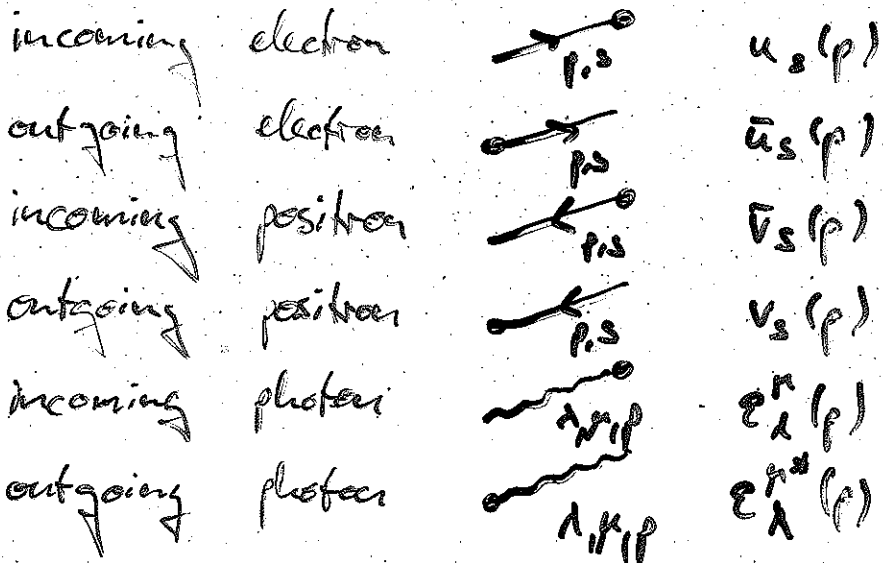 incoming electron p,s u_s(p)
outgoing electron p,s ū_s(p)
incoming positron p,s v̄_s(p)
outgoing positron p,s v_s(p)
incoming photon λ,μ,p ε^μ_λ(p)
outgoing photon λ,μ,p ε^μ*_λ(p)